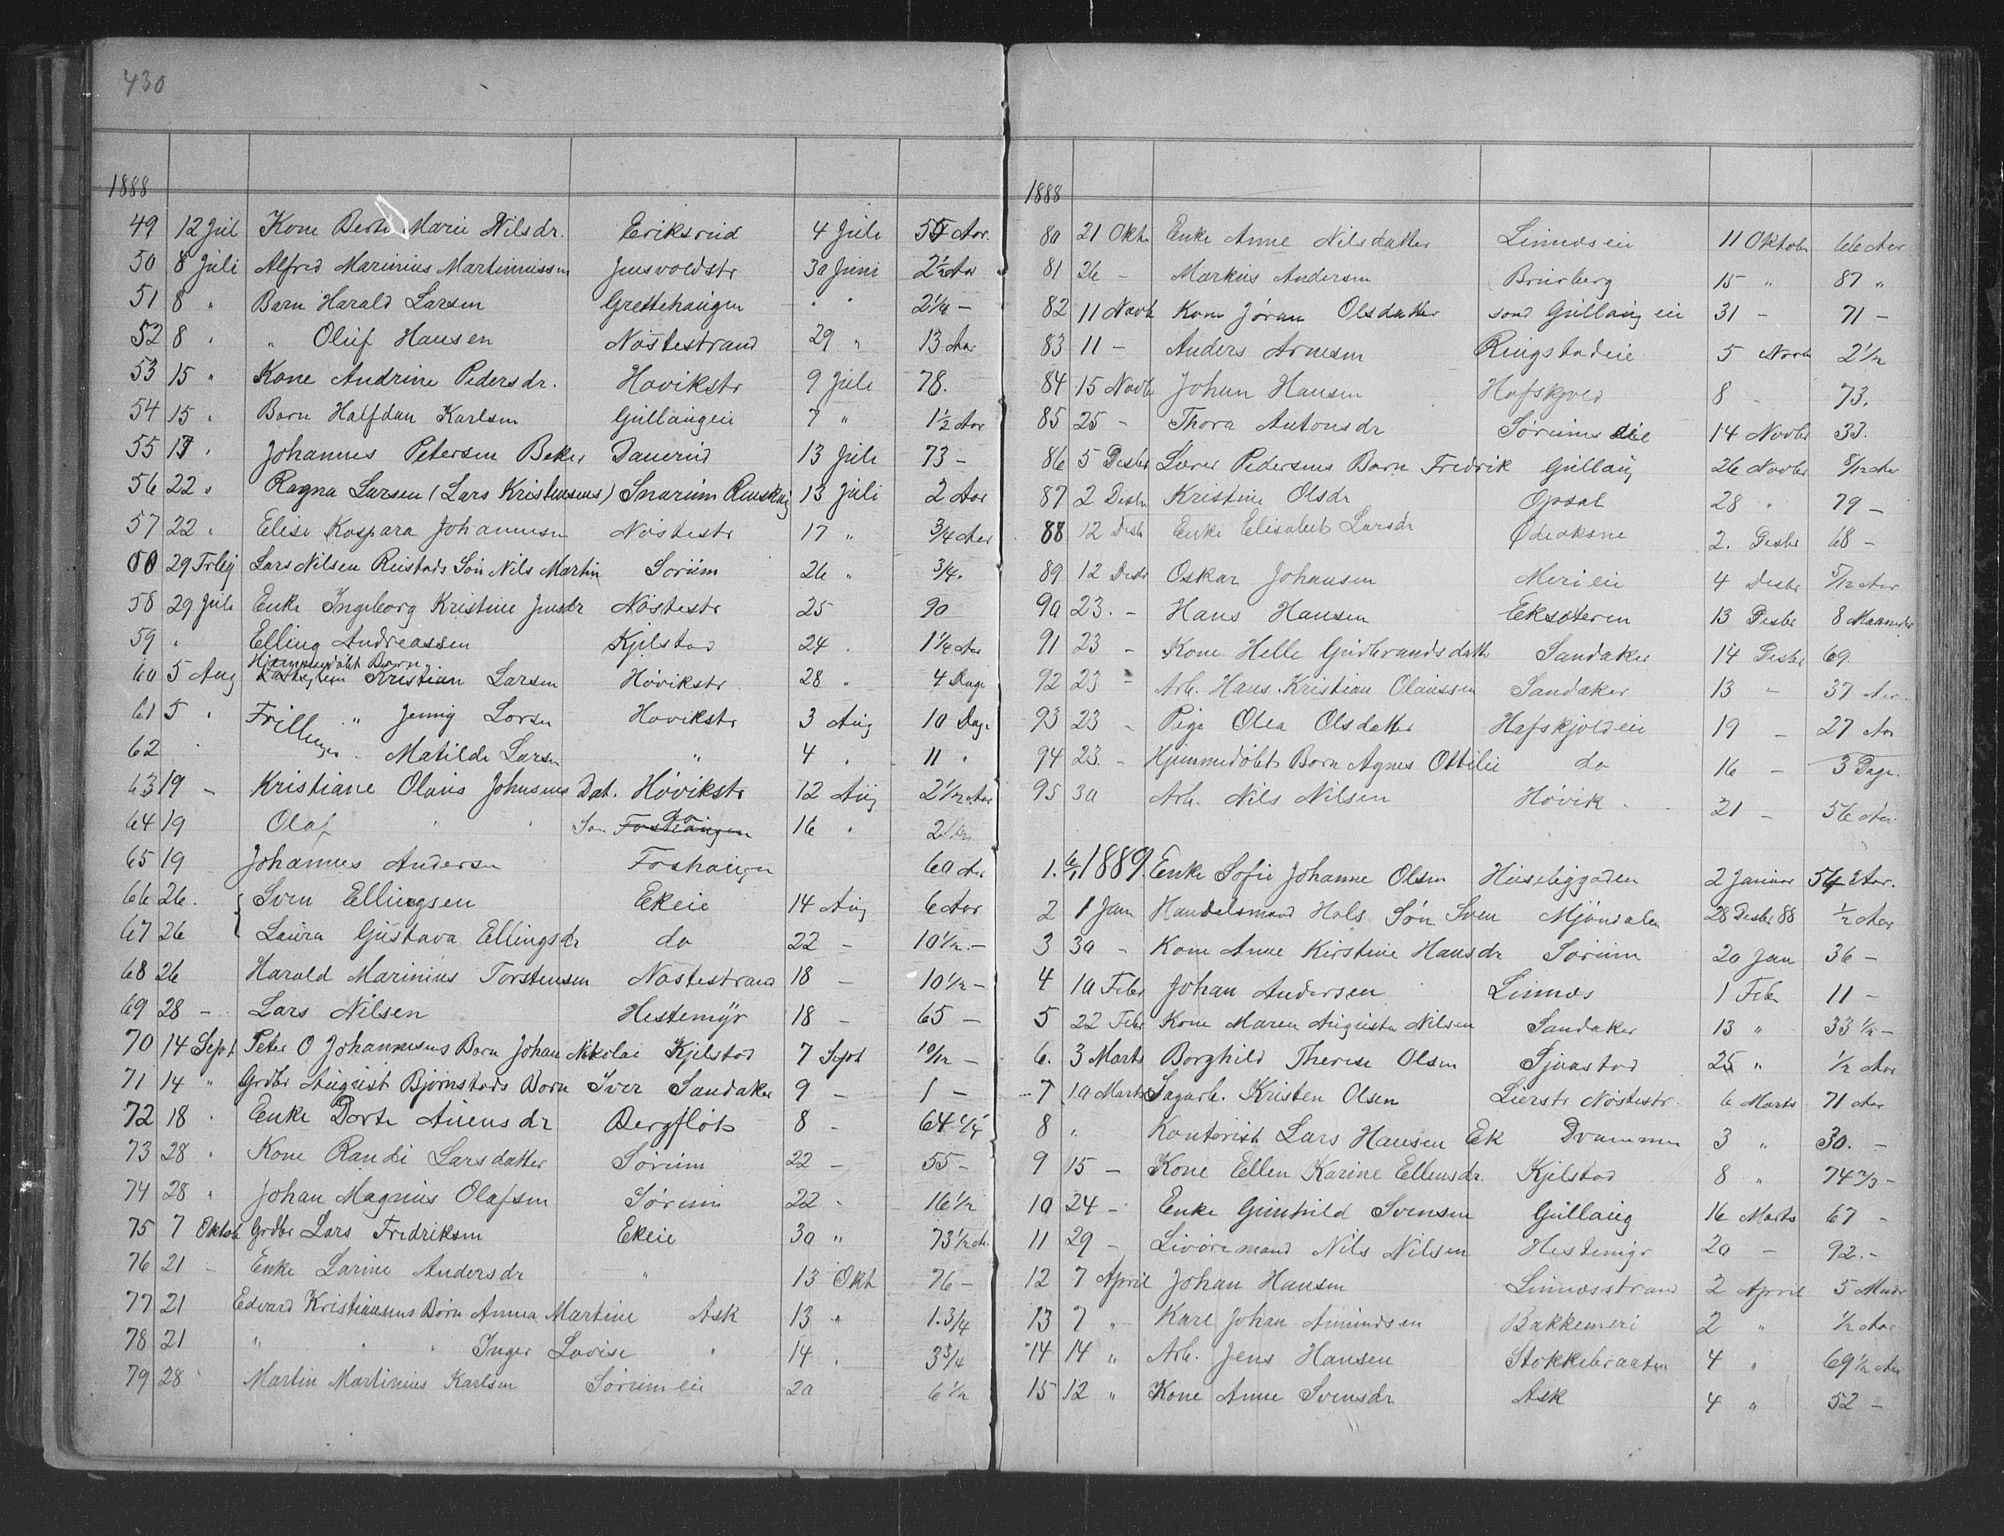 430
1888
49 12 Jul Kone Berte Marie Nilsdr. Eriksrud 4 Juli 55 Aar.
50 8 Juli Alfred Marinius Martinnissen Jensvoldstr 30 Juni 2 1/2 Aar
51 8 " Barn Harald Larsen Grettehaugen " " 2 1/4 -
52 8 " " Oluf Hansen Nøstestrand 29 " 13 Aar
53 15 " Kone Andrine Pedersdr. Høvikstr 9 Juli 78.
54 15 " Barn Halfdan Karlsen Gullaugeie 7 " 1 1/2 Aar
55 17 " Johannes Petersen Beker Danerud 13 Juli 73 -
56 22 " Ragna Larsen (Lars Kristensens) Snarum 13 Juli 2 Aar
57 22 " Elise Kaspara Johannesen Nøstestr 17 " 3/4 Aar
00 29 Lars Nilsen Reistads Søn Nils Martin Sørum 26 " 3/4.
58 29 Juli Enke Ingeborg Kristine Jensdr Nøstestr 25 90
59 " Elling Andreassen Kjelstad 24 " 1 1/4 Aar
Hjemmedøbt Barn
60 5 Aug Kristian Larsen Høvikstr 28 " 4 Dage
61 5 " Trillinger " Jenny Larsen Høvikstr 3 Aug 10 Dage
62 " " Matilde Larsen " 4 " 11 "
63 19 - Kristiane Olaus Johnsens Dat. Høvikstr 12 Aug 2 1/12 Aar
64 19 Olaf " " Søn do 16 " 2
65 19 Johannes Andersen Foshaugen 60 Aar
66 26. Sven Ellingsen Ekeie 14 Aug 6 Aar
67 26 Laura Gustava Ellingsdr do 22 - 10 1/2 -
68 26 Harald Marinius Torstensen Nøstestrand 18 - 10 1/2 -
69 28 - Lars Nilsen Hestemyr 18 - 65 -
70 14 Sept Peter O Johannesens Barn Johan Nikolai Kjelstad 7 Sept 10/12 -
71 14 " Grdbr August Bjørnstads Barn Iver Sandaker 9 - 1 -
72 18 " Enke Dorte Auensdr Bergfløt 8 - 64 1/4
73 28 " Kone Randi Larsdatter Sørum 22 - 55 -
74 28 " Johan Magnus Olafsen Sørum 22 - 16 1/2
75 7 Oktob Grdbr Lars Fredriksen Ekeie 30 " 73 1/2 A.
76 21 - Enke Larine Andersdr " 13 Okt 76 -
77 21 Edvard Kristiansens Børn Anna Martine Ask 13 " 1.3/4
78 21 " " " Inger Lovise " 14 " 3 3/4
79 28 Martin Martinius Karlsen Sørumeie 20 6 1/2
1888
80 21 Oktr Enke Anne Nilsdatter Linneseie 11 Oktobr 66 Aar
81 26 - Markus Andersen Brurberg 15 " 87 "
82 11 Novbr Kone Jøran Olsdatter Gullaugeie 31 - 71 -
83 11 - Anders Arnesen Ringstadeie 5 Novbr 2 1/2
84 15 Novbr Johan Hansen Hafskjold 8 - 73.
85 25 - Thora Antonsdr Sørums eie 14 Novbr 33.
86 5 Desbr Lærer Pedersens Barn Fredrik Gullaug 26 Novbr 8/12 Aar
87 2 Desbr Kristine Olsdr Opsal 28 " 79 -
88 12 Desbr Enke Elisabet Larsdr 2. Desbr 68 -
89 12 Desbr Oskar Johansen Merieie 4 Desbr 5/12 Aar
90 23. - Hans Hansen Eksæteren 13 Desbr 8 Maaneder
91 23 - Kone Helle Gudbrandsdatter Sandaker 14 Desbr 69.
92 23 - Arb. Hans Kristian Olaussen Sandaker 13 - 37 Aar.
93 23 - Pige Olea Olsdatter Hafskjoldeie 19 - 27 Aar
94 23. - Hjemmedøbt Barn Agnes Ottilie do 16 - 3 Dage.
95 30 Arb. Nils Nilsen Høvik 21 - 56 Aar
1. 6/1 1889 Enke Sofie Johanne Olsen Husebygaden 2 Januar 54 Aar.
2 1 Jan Handelsmand Hals Søn Sven Mjøndalen 28 Desbr 88 1/2 Aar
3 30 - Kone Anne Kirstine Hansdr Sørum 20 Jan 36 -
4 10 Febr Johan Andersen Linnes 1 Febr 11 -
5 22 Febr Kone Maren Augusta Nilsen Sandaker 13 " 33 1/2 -
6. 3 Marts Borghild Therese Olsen Sjaastad 25 " 1/2 Aar
7 10 Marts Sagarb. Kristen Olsen Lierstr Nøstestr. 6 Marts 71 Aar
8 " Kontorist Lars Hansen Ek Drammen 3 " 30. -
9 15 - Kone Ellen Karine Ellensdr. Kjelstad 8 " 74 2/3 -
10 24 - Enke Gunhild Svensen Gullaug 16 Marts 67 -
11 29 - Livøremand Nils Nilsen Hestemyr 20 - 92. -
12 7 April Johan Hansen Linnesstrand 2 April 5 Mndr
13 7 " Karl Johan Amundsen Bakkemeri 2 " 1/2 Aar
14 14 " Arb. Jens Hansen Stokkebraaten 4 " 69 1/2 Aar
15 12 " Kone Anne Svensdr Ask 4 " 52 -